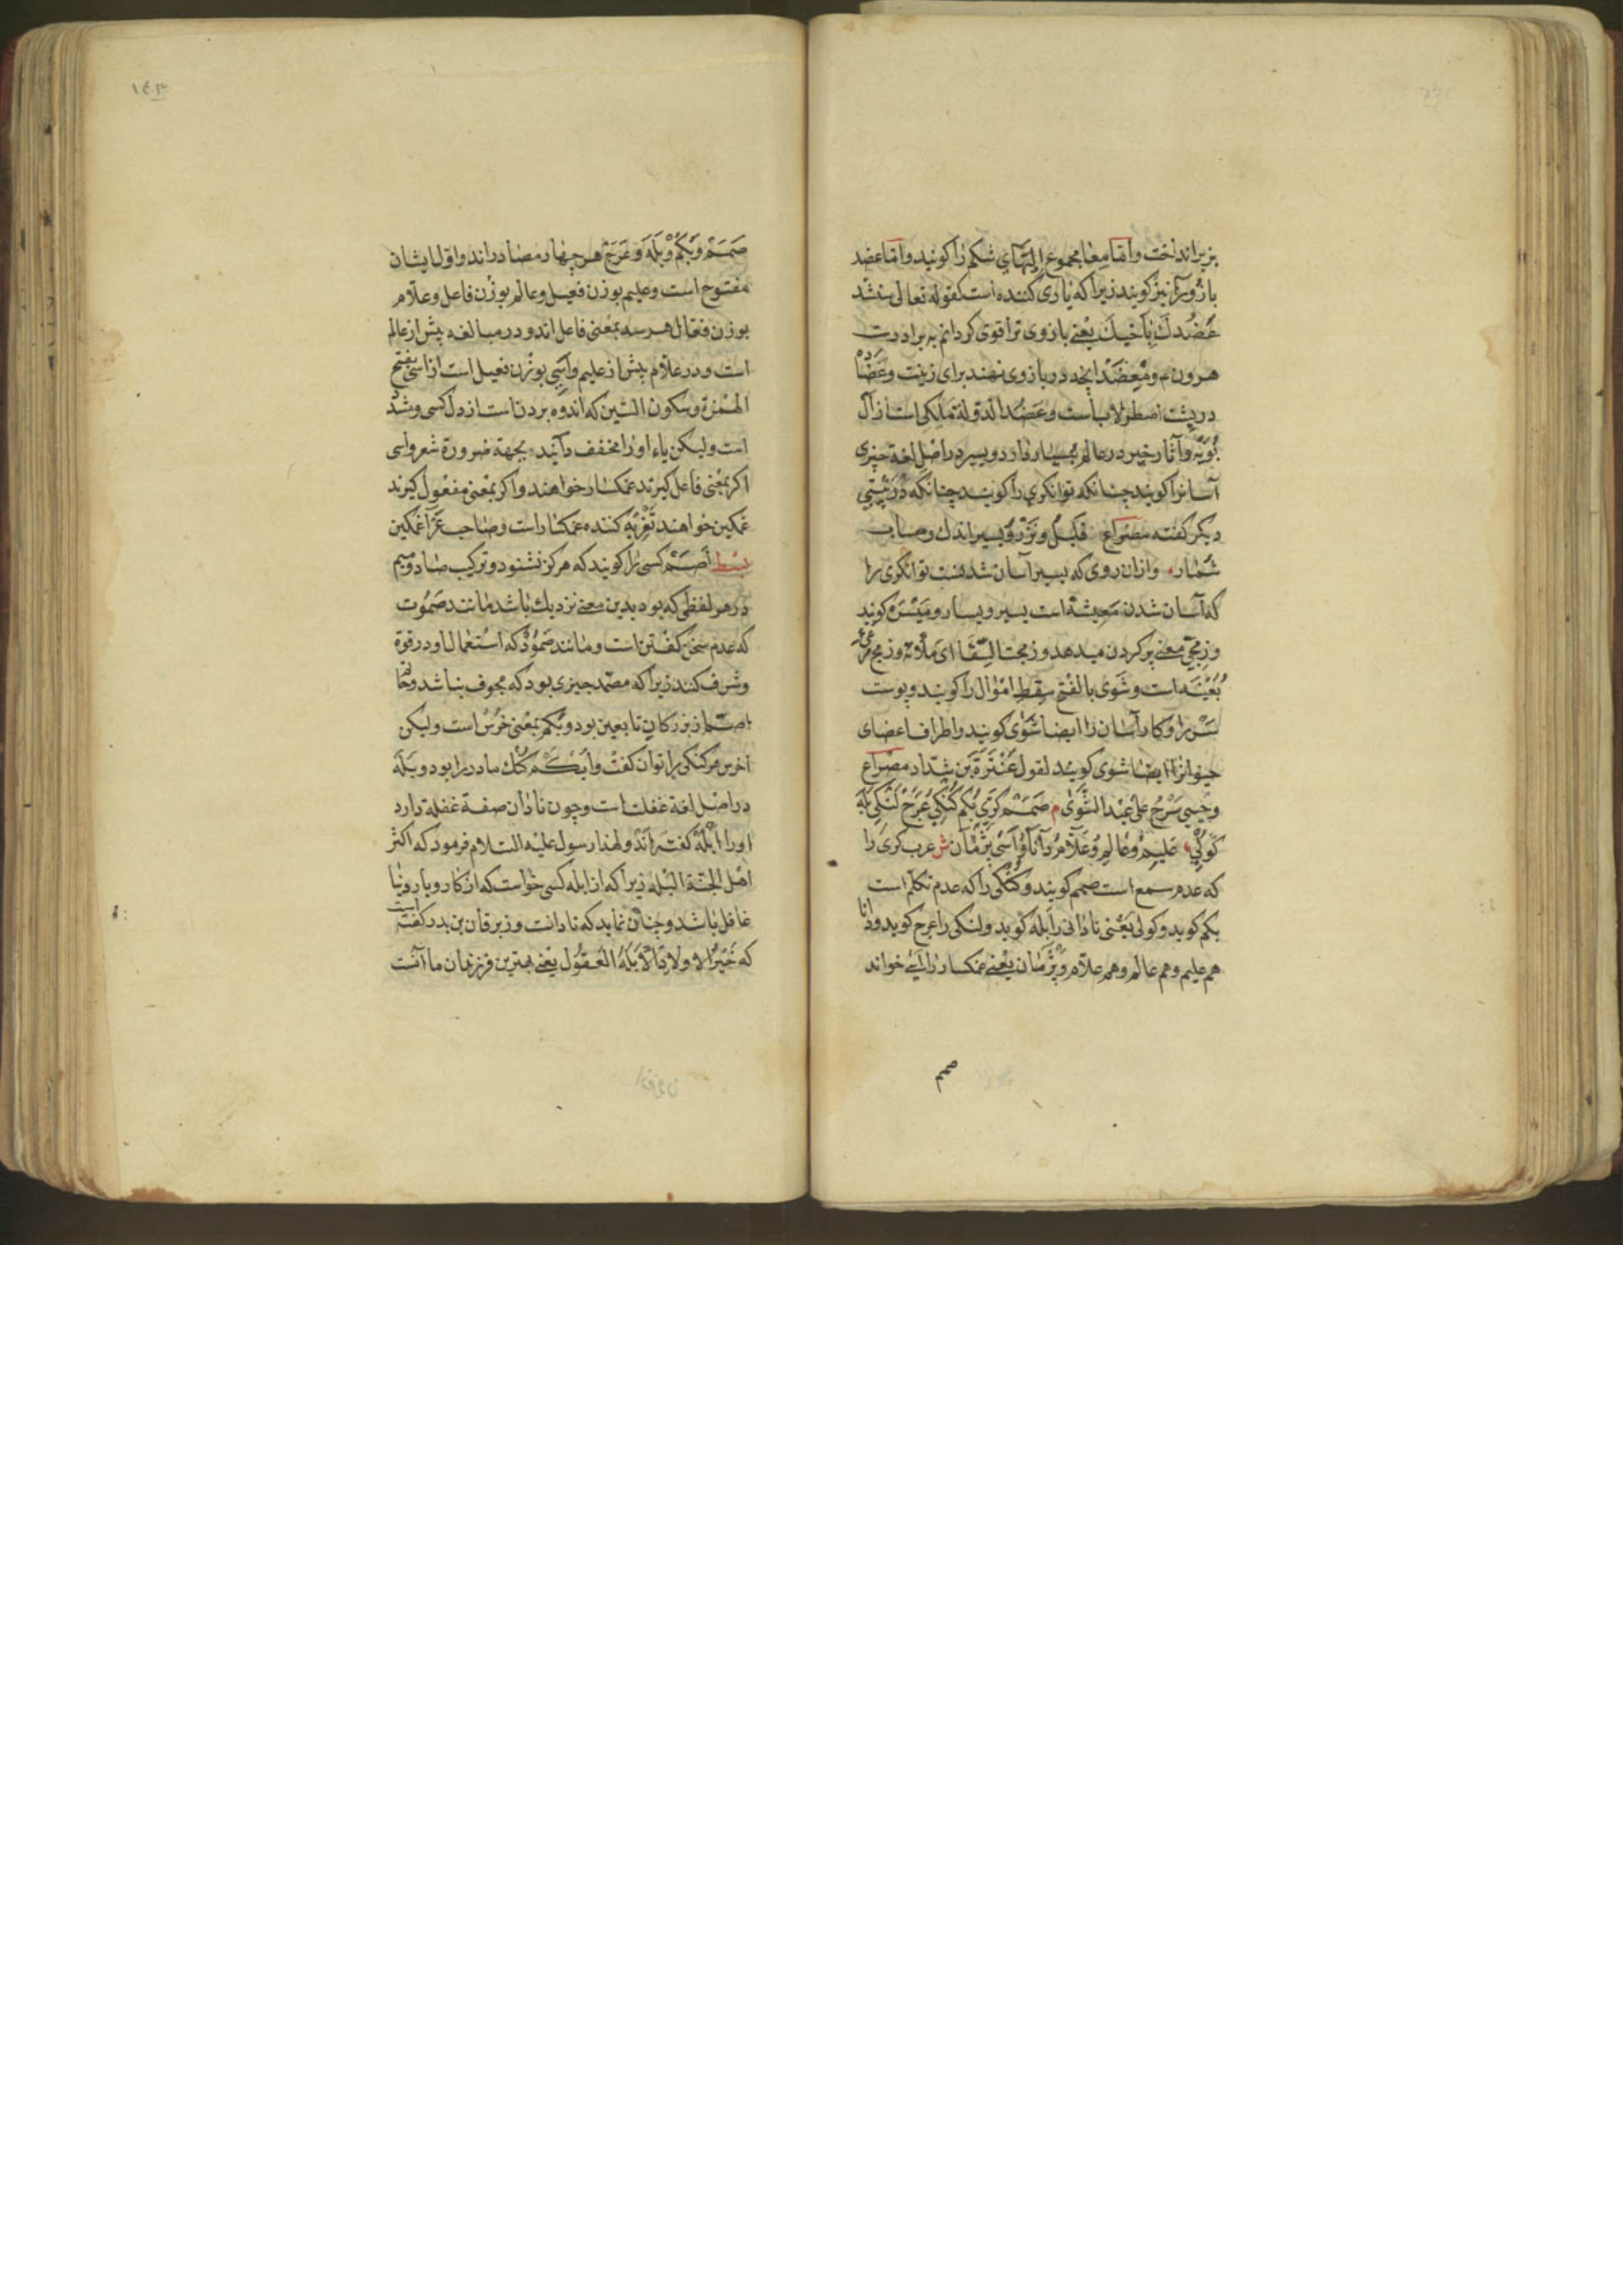 بزیر انداخت و امّا مِعا مجموع التهای شکم را کویند و امّا عضد
بازو و یرا نیز کویند زیرا که یاری کننده است کقوله تعالی سنشد
عَضُدَكَ بِاَخيكَ یعنی بازوی ترا قوی کردانم به برادرت
هرون م و مِعضَد آنچه در بازوی نهند برای زینت و عضاده
در پشت اصطرلاب است و عضد الدولة ملکی است از آل
بُویَه و آثار خیر در عالم بسیار دارد و یسیر در اصل لغة چیزی
آسانرا کویند چنانکه توانکری را کویند چنانکه در بیتی
دیکر کفته مصراع قلیل و نزر و یسیر اندك و حساب
شمار و ازان روی که یسیر آسان شدنست توانکری را
که آسان شدن مَعِیشة است یسیر و یسار و مَیْسَره کویند
و زمجی معنی پر کردن میدهد و زمجت السِّقَا ای ملأته و زمج مرغی
بُعَیْنَه است و شَوی بالفتح سِقط اموال را کویند و پوست
سَر را و کار آسان را ایضا شوی کویند و اطراف اعضای
حیوانرا ایضا شوی کویند لقول عَنْتَرَة بن شدّاد مصراع
و حَشِیّتی سَرْجٌ علی عَبْد الشَّوَی م صَمَمْ کری بُکم کُنکی عَرَجْ لَنْکی بَلَه
کولی علیم و عالم و علّام دانا و اَسی پژمان ش عرب کری را
که عدم سمع است صمم کویند و کنکی را که عدم تکلم است
بکم کوید و کولی یعنی نادانی را بله کوید و لنکی را عرج کوید و دانا
هم علیم و هم عالم و هم علّام و پژمان یعنی غمکسار را آسی خواند
صمم
١٤٣
صَمَمْ وَبَکَمْ وَبَلَه وَعَرَجْ هر چهار مصادر اند و اوّل ایشان
مفتوح است و علیم بوزن فعیل و عالم بوزن فاعل و علّام
بوزن فعّال هر سه بمعنی فاعل اند و در مبالغه بیش از عالم
است و در علّام بیش از علیم و اَسِی بوزن فعیل است از اسی بفتح
الهمزة و سکون السّین که اندوه بردنست از دل کسی و مشدّد
است ولیکن یاء او را مخفف دانند بجهة ضرورة شعر و اسی
اکر بمعنی فاعل کیرند غمکسار خواهند و اکر بمعنی مفعول کیرند
غمکین خواهند تَعْزِیَه کننده غمکسار است و صاحب عَزا غمکین
بسط اَصَمّ کسی را کویند که هرکز نشنود و ترکیب صاد و میم
در هر لفظی که بود بدین معنی نزدیك باشد مانند صَمُوت
که عدم سخن کفتن است و مانند صَمُود که استعمال او در قوة
و شرف کنند زیرا که مصمّد چیزی بود که مجوف نباشد و حاتم
اصمّ از بزرکان تابعین بود و بکم بمعنی خرس است ولیکن
اخرس هر کنکی را توان کفت و اَبْکَم کنك مادرزا بود و بَلَه
در اصل لغة غفلت است و چون نادان صفة غفلة دارد
او را اَبْلَه کفته اند و لهذا رسول علیه السلام فرمود که اکثر
اهل الجنّة البُله زیرا که از ابله کسی خواست که از کار و بار دنیا
غافل باشد و چنان نماید که نادانست و زبرقان بن بدر کفته است
که خَیْرُ اَولادِنَا الاَبْلَهُ العَقُول یعنی بهترین فرزندان ما آنست